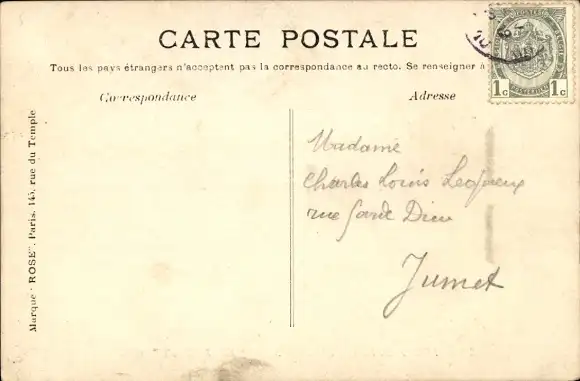 CARTE POSTALE
Tous les pays étrangers n'acceptent pas la correspondance au recto. Se renseigner à
Correspondance
Adresse
1c 1c
Marque "ROSE". Paris. 145, rue du Temple
Madame
Charles Louis
rue Garde Dieu
Jumet